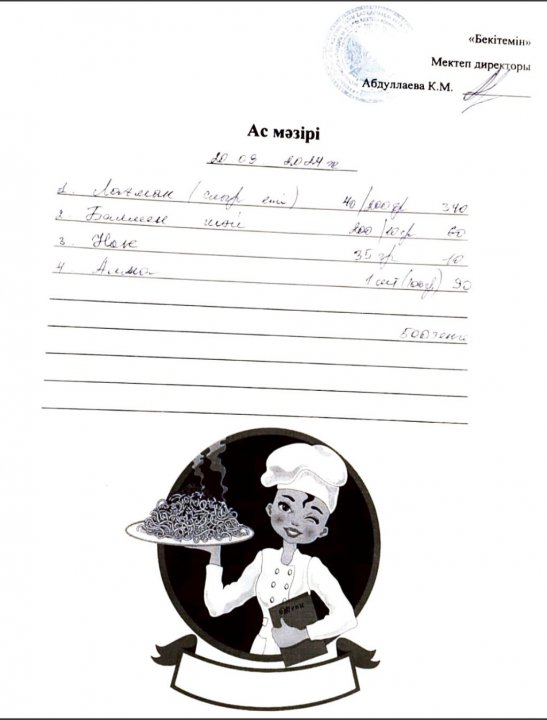 «Бекітемін»
Мектеп директоры
Абдуллаева К.М.
Ас мәзірі
20 09 2024 ж
1. Лағман (сиыр еті) 40/200гр 340
2. Балмен шай 200/10гр 60
3. Нан 35 гр 10
4. Алма 1 шт (100гр) 90
500 теңге